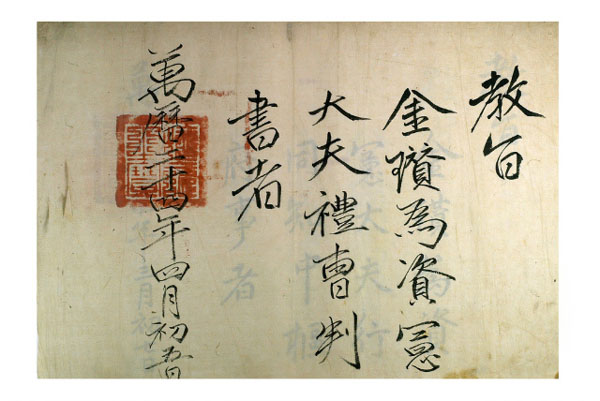 教旨
金瓚為資憲
大夫禮曹判
書者
萬曆二十四年四月初五日